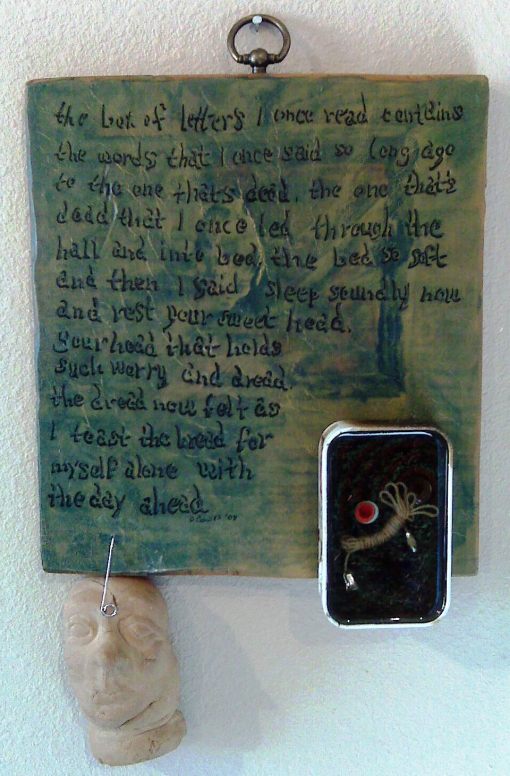 the box of letters I once read contains
the words that I once said so long ago
to the one that's dead. the one that's
dead that I once led through the
hall and into bed. the bed so soft
and then I said sleep soundly now
and rest your sweet head.
your head that holds
such worry and dread.
the dread now felt as
I toast the bread for
myself alone with
the day ahead.